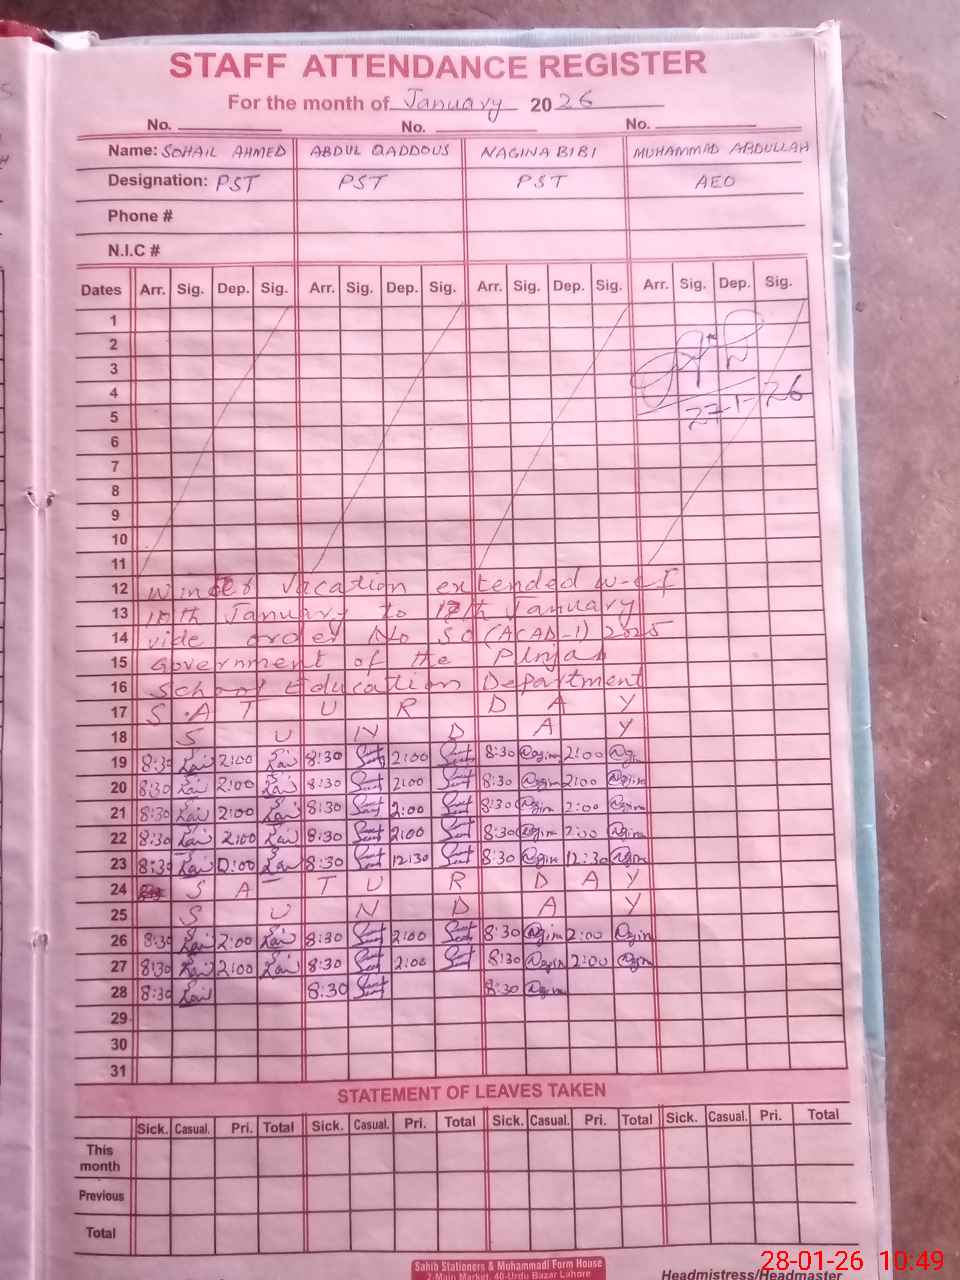 STAFF ATTENDANCE REGISTER
For the month of January 2026
No. No. No.
Name: SOHAIL AHMED ABDUL QADDOUS NAGINA BIBI MUHAMMAD ABDULLAH
Designation: PST PST PST AEO
Phone #
N.I.C #
Dates Arr. Sig. Dep. Sig. Arr. Sig. Dep. Sig. Arr. Sig. Dep. Sig. Arr. Sig. Dep. Sig.
1
2
3
4
5 27-1-26
6
7
8
9
10
11
12 Winter vacation extended w-e-f
13 10th January to 17th January
14 vide order No SO (ACAD-1) 2025
15 Government of the Punjab
16 School Education Department
17 S A T U R D A Y
18 S U N D A Y
19 8:30 2:00 8:30 2:00 8:30 2:00
20 8:30 2:00 8:30 2:00 8:30 2:00
21 8:30 2:00 8:30 2:00 8:30 2:00
22 8:30 2:00 8:30 2:00 8:30 2:00
23 8:30 8:30 12:30 8:30 12:30
24 S A T U R D A Y
25 S U N D A Y
26 8:30 2:00 8:30 2:00 8:30 2:00
27 8:30 2:00 8:30 2:00 8:30 2:00
28 8:30 8:30 8:30
29
30
31
STATEMENT OF LEAVES TAKEN
Sick. Casual. Pri. Total Sick. Casual. Pri. Total Sick. Casual. Pri. Total Sick. Casual. Pri. Total
This month
Previous
Total
Sahib Stationers & Muhammadi Form House
2-Main Market, 40-Urdu Bazar Lahore
Headmistress/Headmaster
28-01-26 10:49